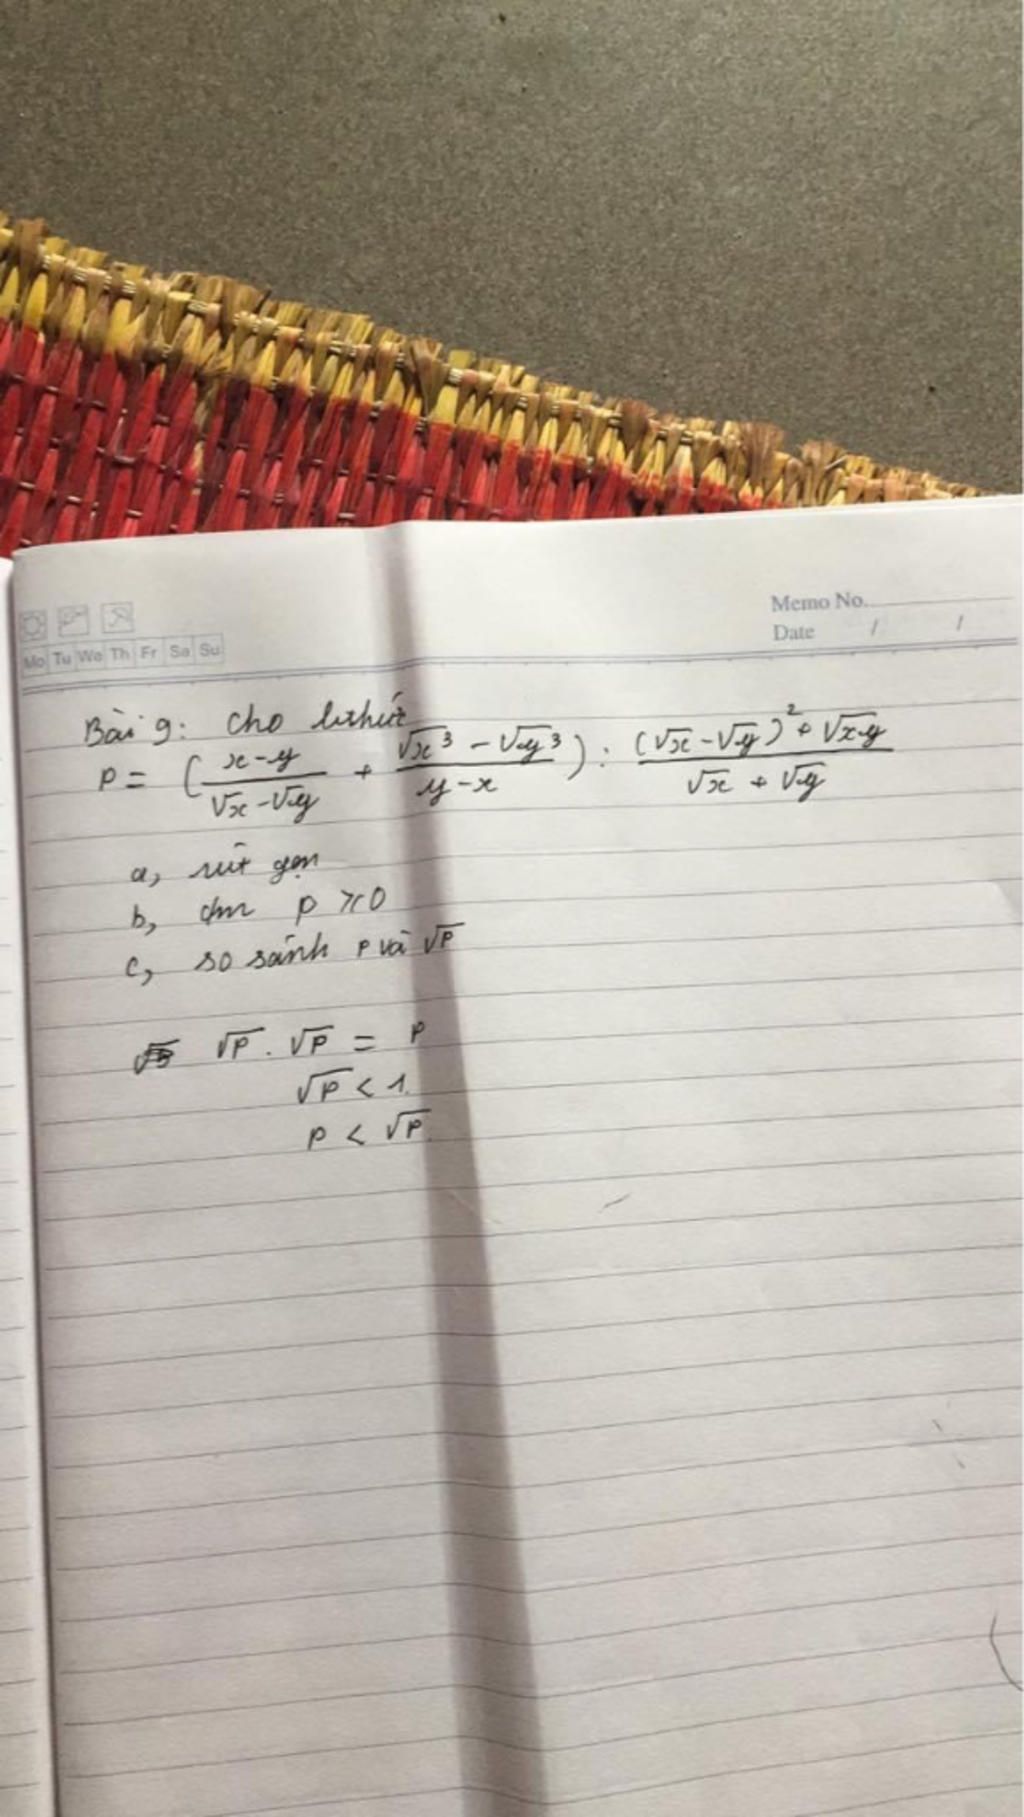 Memo No.
Date / /
Mo Tu We Th Fr Sa Su
Bài 9: Cho bthức
P = (\frac{x-y}{\sqrt{x}-\sqrt{y}} + \frac{\sqrt{x^3}-\sqrt{y^3}}{y-x}) : \frac{(\sqrt{x}-\sqrt{y})^2+\sqrt{xy}}{\sqrt{x}+\sqrt{y}}
a, rút gọn
b, cm P ≥ 0
c, so sánh P và √P
√P . √P = P
√P < 1.
P < √P.